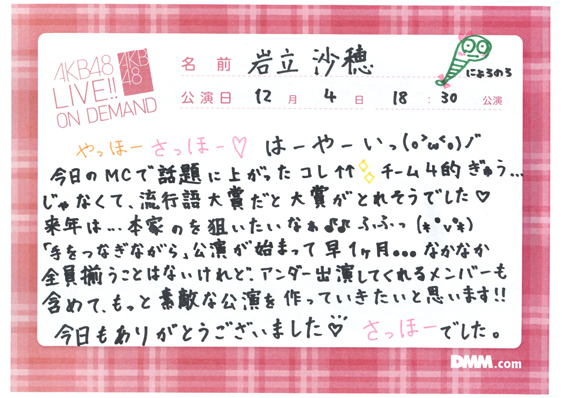 AKB48
LIVE!!
ON DEMAND
AKB
48
名前 岩立 沙穂
にょろのろ
公演日 12月 4日 18:30 公演
やっほー さっほー♡ はーやーいっ(o>ω<o)ノ"
今日のMCで話題に上がったコレ↑↑ チーム4的ぎゅう...
じゃなくて、流行語大賞だと大賞がとれそうでした♡
来年は...本家のを狙いたいなぁ♪♪ ふふっ(*°ν°*)
「手をつなぎながら」公演が始まって早1ヶ月●●●なかなか
全員揃うことはないけれど、アンダー出演してくれるメンバーも
含めて、もっと素敵な公演を作っていきたいと思います!!
今日もありがとうございました♡ さっほーでした。
DMM.com